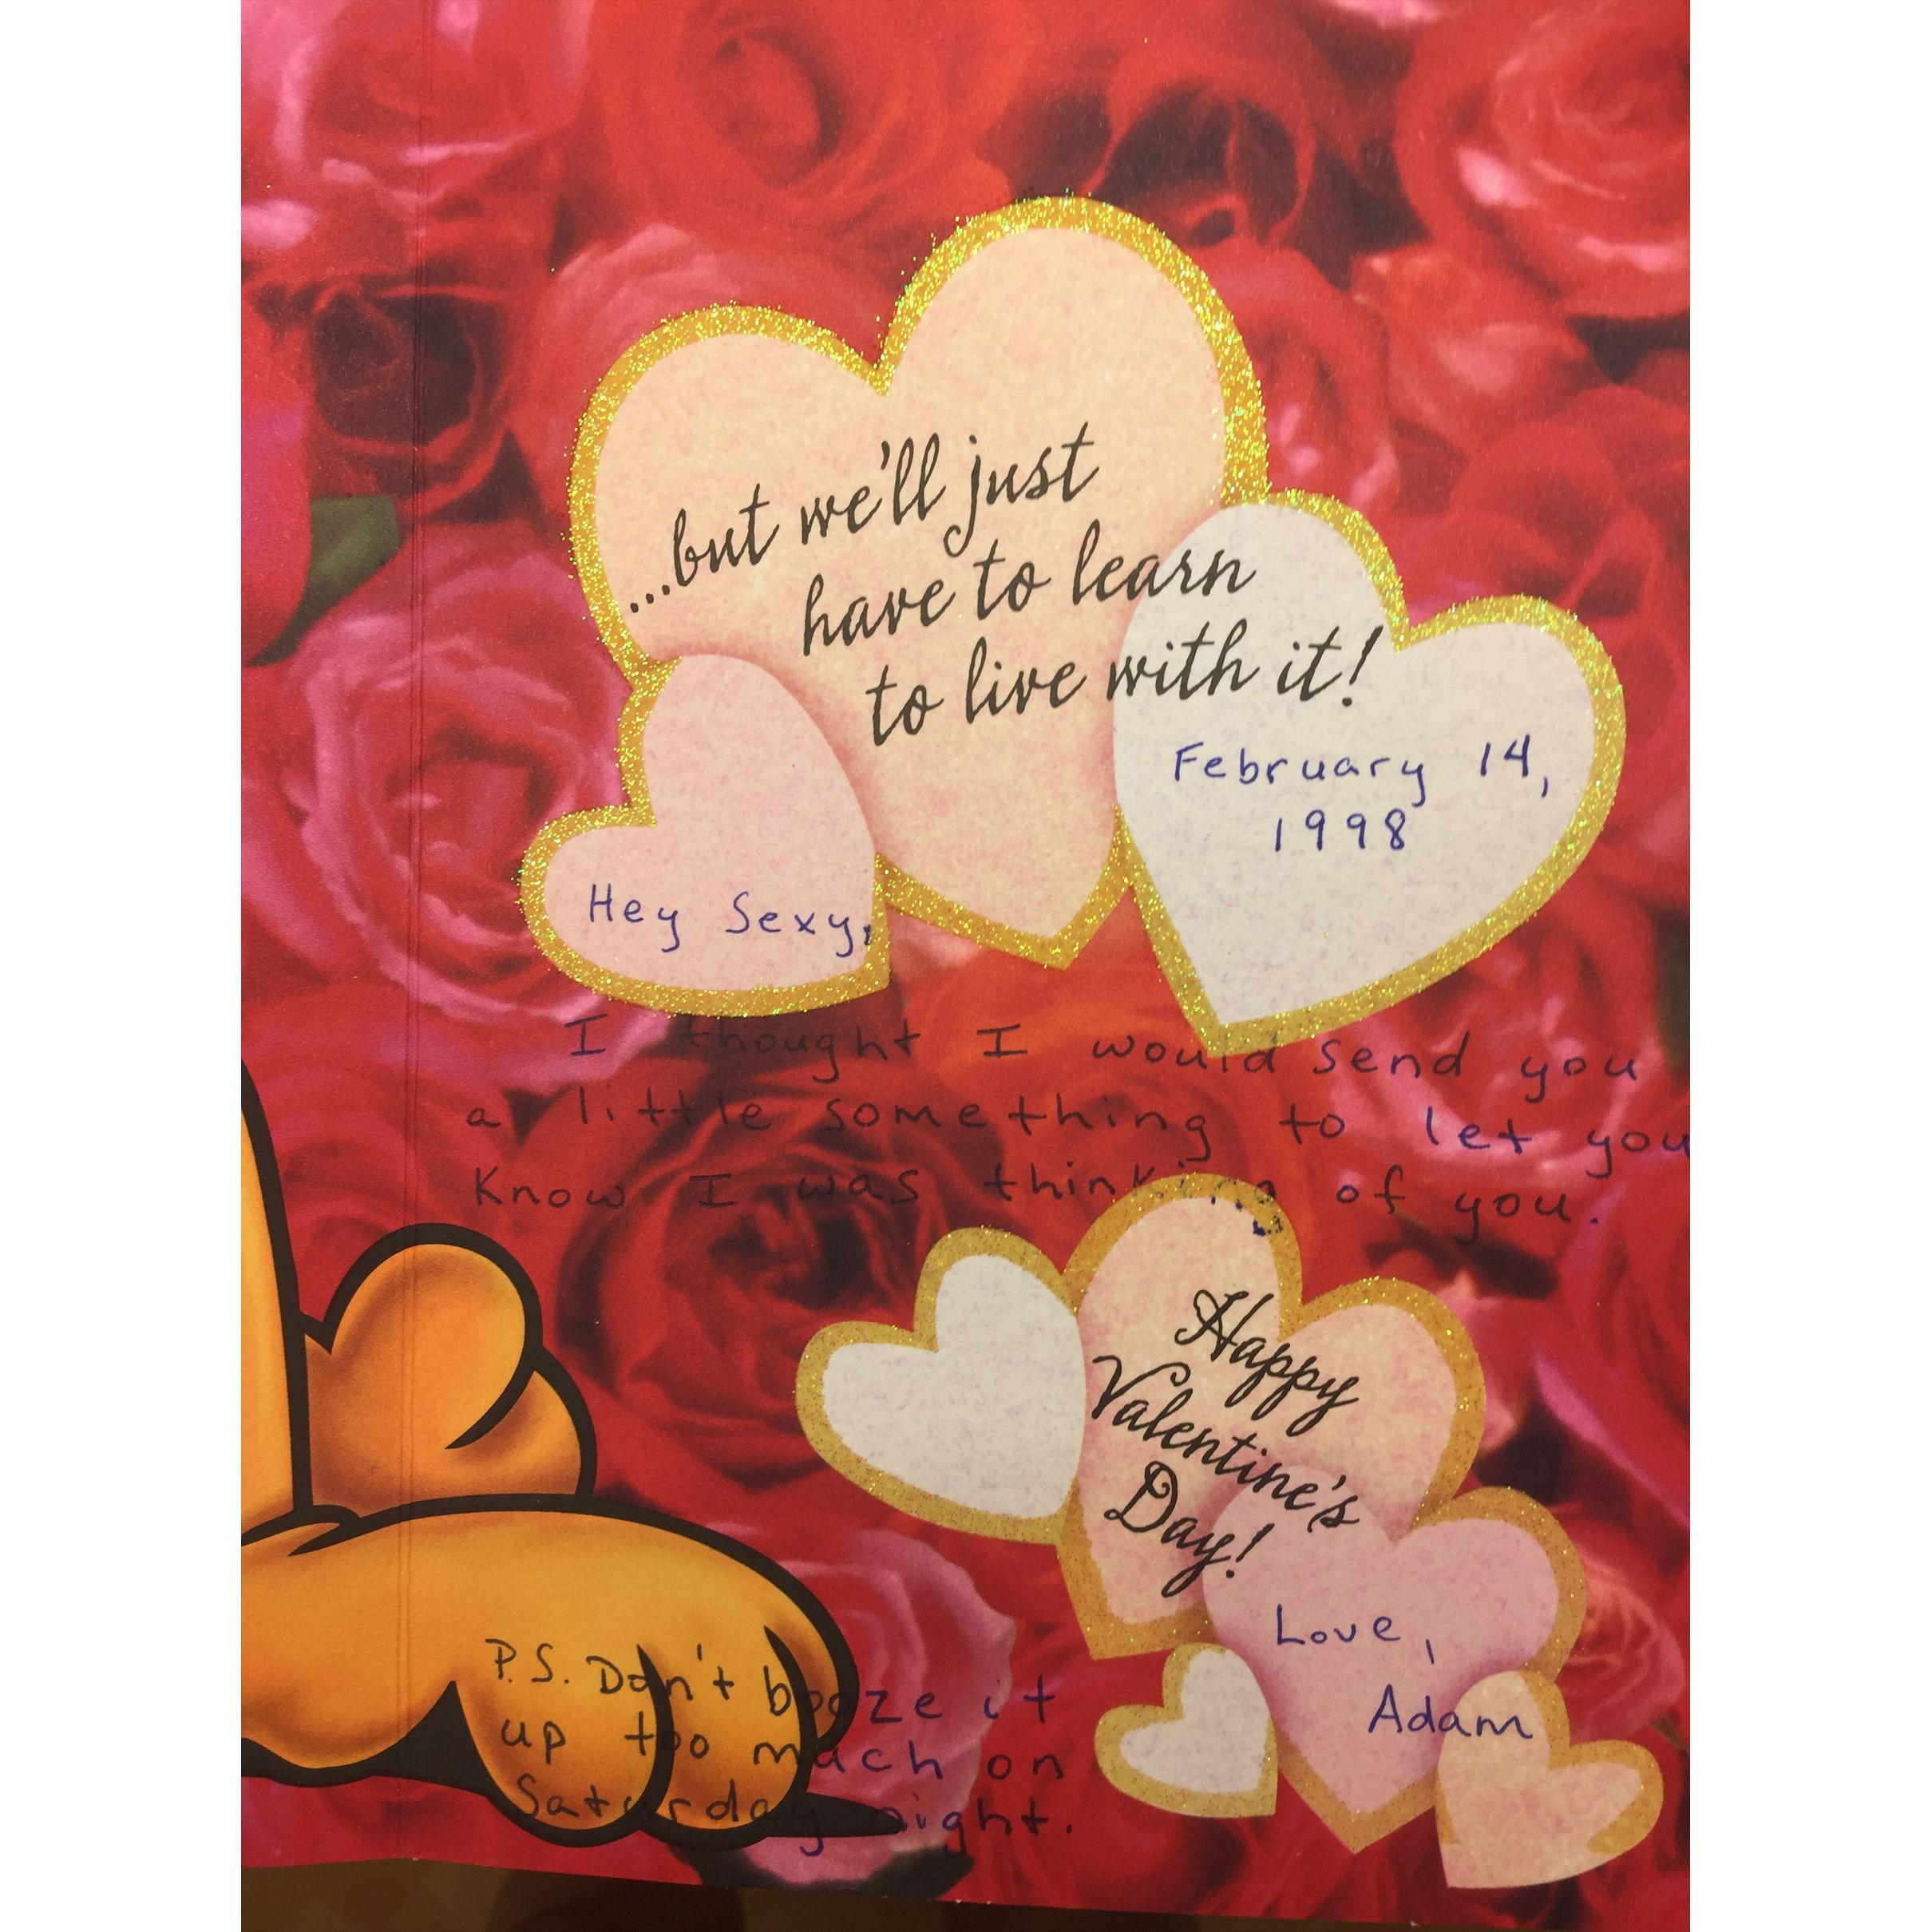 ...but we'll just
have to learn
to live with it!
February 14,
1998
Hey Sexy,
I thought I would send you
a little something to let you
Know I was thinking of you.
Happy
Valentine's
Day!
Love,
Adam
P.S. Don't booze it
up too much on
Saturday night.